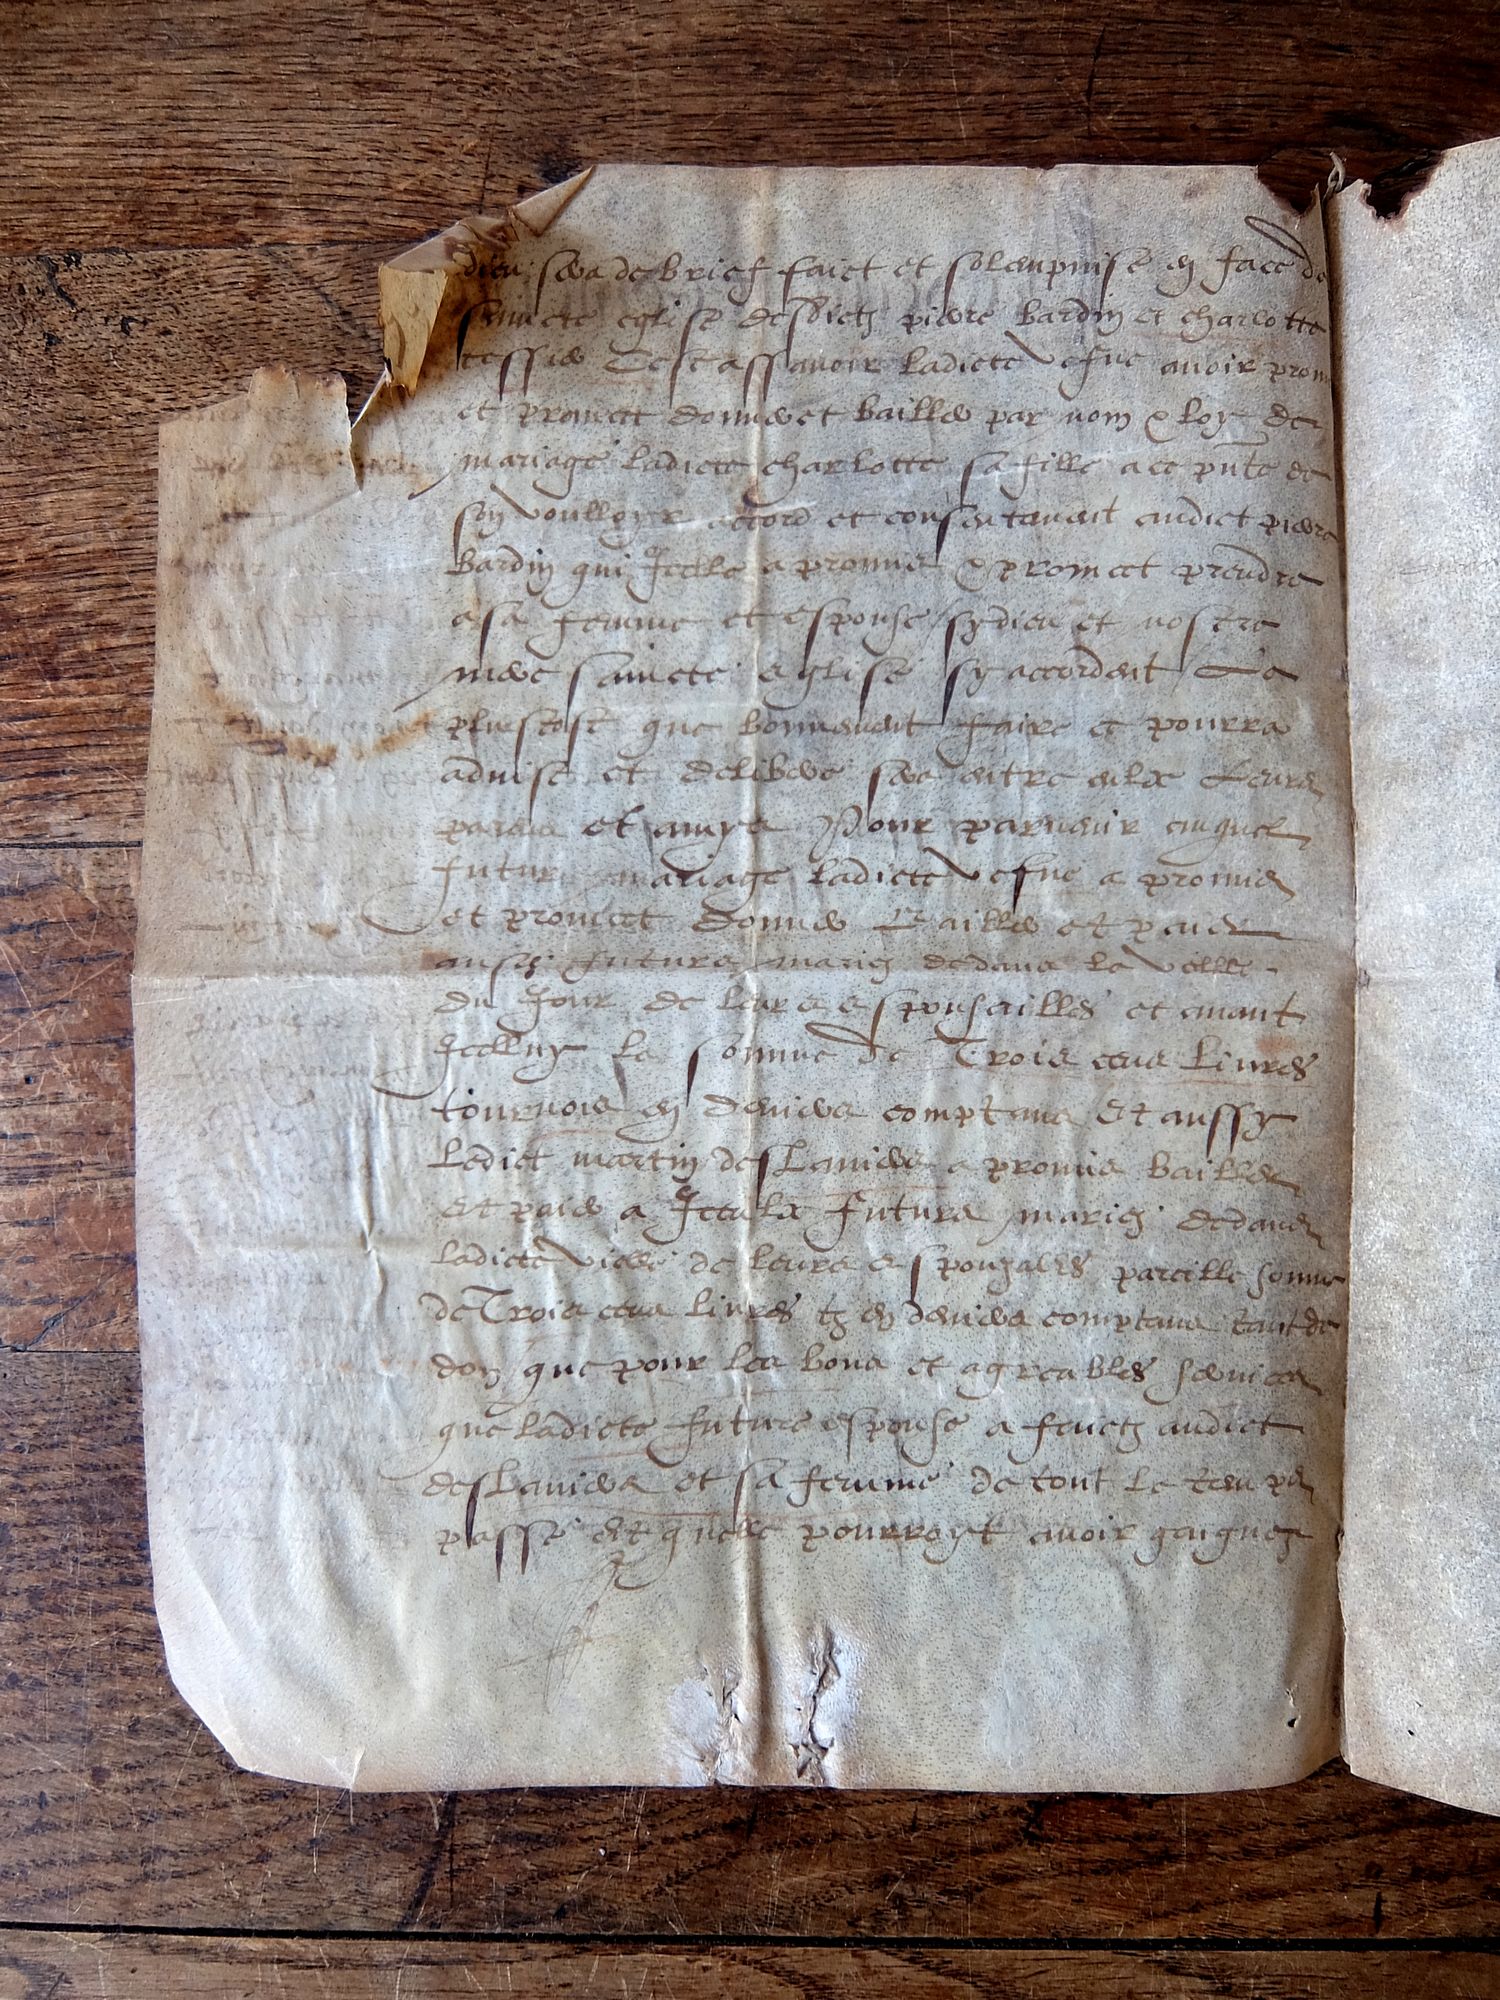 dieu sera de brief faict et solempnisé en face de
saincte eglise desdictz pierre Bardin et charlotte
tessier Cest assavoir ladicte vefve avoir prom
et promect donner et bailler par nom & loy de
mariage ladicte charlotte sa fille a ce pnte de
son voulloyr accord et consentement audict pierre
Bardin qui Icelle a promis & promect prendre
a sa femme et espouse sy dieu et nostre
mere saincte eglise sy accordent Le
plustost que bonnement faire ce pourra
advisé et deliberé sera entre eulx Leurs
parens et amys Pour parvenir auquel
futur mariage ladicte vefve a promis
et promect donner Bailler et paier
ausdictz futurs mariez dedans la veille
du Jour de leurs espousailles et avant
Icelluy la somme de Trois cens livres
tournois en deniers comptans Et aussy
Ledict martin deslaviers a promis bailler
et paier a Iceulx futurs mariez dedans
ladicte vielle de leurs espousailles pareille somme
de Trois cens livres tz en deniers comptans tant de
don que pour les bons et agreables services
que ladicte future espouse a faictz audict
deslaviers et sa femme de tout le temps
passé et quelle pourroyt avoir gaignez